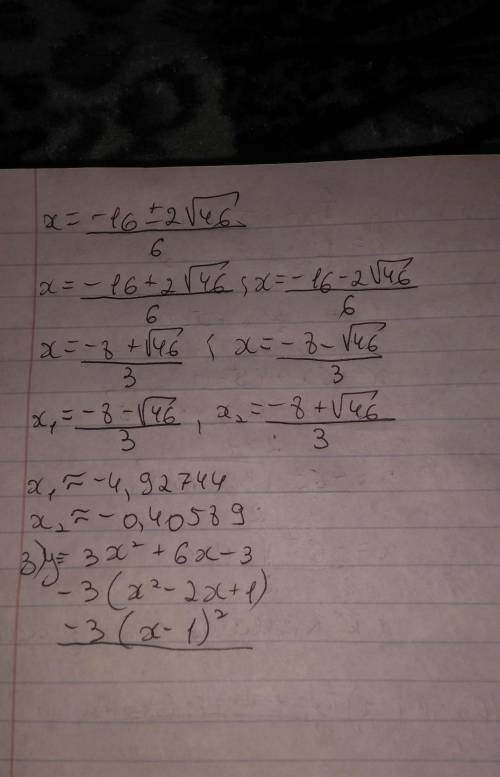 x = (-16 ± 2√46)/6
x = (-16 + 2√46)/6 ; x = (-16 - 2√46)/6
x = (-8 + √46)/3 ; x = (-8 - √46)/3
x₁ = (-8 - √46)/3 , x₂ = (-8 + √46)/3
x₁ ≈ -4,92744
x₂ ≈ -0,40589
3) y = 3x² + 6x - 3
-3(x² - 2x + 1)
-3(x - 1)²